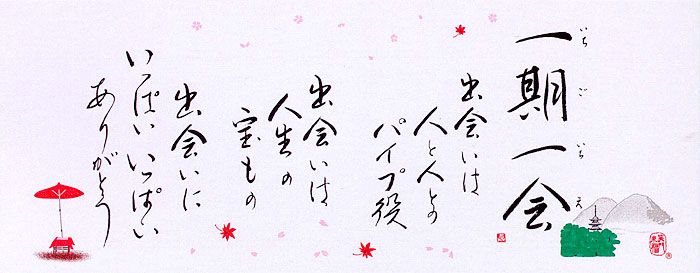 一期一会
いちごいちえ
出会いは
人と人の
パイプ役
出会いは
人生の
宝もの
出会いに
いっぱいいっぱい
ありがとう